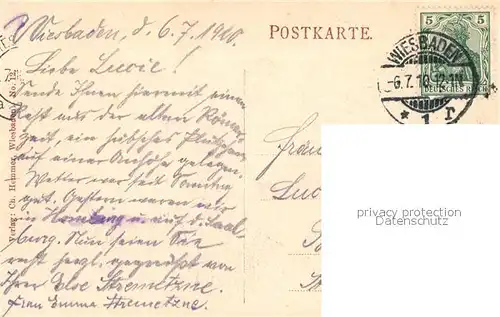 Wiesbaden, d. 6.7.1910.
POSTKARTE.
5 5
DEUTSCHES REICH
WIESBADEN
-6.7.10.12-1N
* 1 r
Liebe Lucie!
Sende Ihnen hiermit einen
Rest aus der alten Römer
Zeit, ein hübsches
auf einer Anhöhe gelegen.
Wetter war seit Sonntag
gut. Gestern waren wir
in Homburg u. auf d. Saal-
burg. Nun seien Sie
recht herzl. gegrüßt von
Ihrer Else Stremetzne.
Frau Emma Stremetzne.
Verlag: Ch. Hemmer, Wiesbaden No. 12.
Frau
privacy protection
Datenschutz